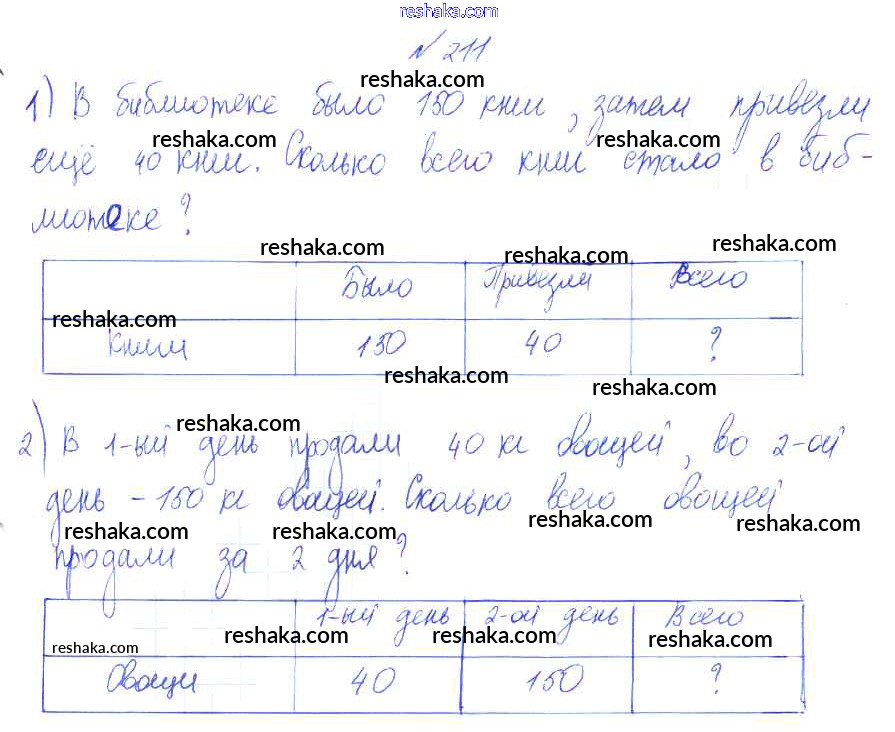 reshaka.com
№ 211
reshaka.com
1) В библиотеке было 150 книг, затем привезли
reshaka.com reshaka.com
ещё 40 книг. Сколько всего книг стало в биб-
лиотеке?
reshaka.com reshaka.com reshaka.com
Было Привезли Всего
reshaka.com
Книги 150 40 ?
reshaka.com reshaka.com
reshaka.com
2) В 1-ый день продали 40 кг овощей, во 2-ой
день - 150 кг овощей. Сколько всего овощей
reshaka.com reshaka.com reshaka.com reshaka.com
продали за 2 дня?
1-ый день 2-ой день Всего
reshaka.com reshaka.com reshaka.com reshaka.com
Овощи 40 150 ?